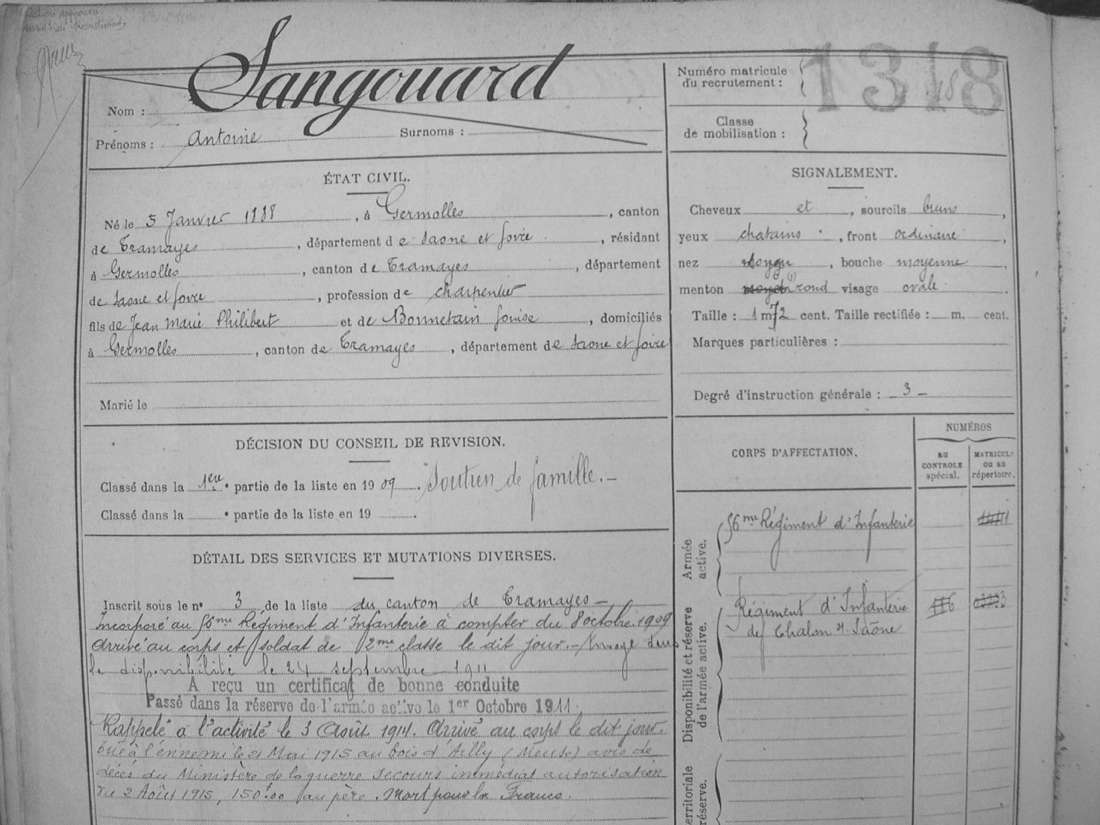 Sangouard
Nom :
Prénoms : Antoine Surnoms :
Numéro matricule du recrutement : 1318
Classe de mobilisation :
ÉTAT CIVIL.
Né le 5 Janvier 1888, à Germolles, canton
de Tramayes, département de Saone et Loire, résidant
à Germolles, canton de Tramayes, département
de Saone et Loire, profession de charpentier
fils de Jean Marie Philibert et de Bonnetain Louise, domiciliés
à Germolles, canton de Tramayes, département de Saone et Loire
Marié le
SIGNALEMENT.
Cheveux et, sourcils bruns,
yeux chatains, front ordinaire
nez moyen, bouche moyenne
menton rond visage ovale
Taille : 1 m 72 cent. Taille rectifiée : m. cent.
Marques particulières :
Degré d'instruction générale : 3
DÉCISION DU CONSEIL DE REVISION.
Classé dans la 1ere partie de la liste en 1909. Soutien de famille.
Classé dans la partie de la liste en 19
DÉTAIL DES SERVICES ET MUTATIONS DIVERSES.
Inscrit sous le n° 3 de la liste du canton de Tramayes
Incorporé au 56me Régiment d'Infanterie à compter du 8 octobre 1909
arrivé au corps et soldat de 2me classe le dit jour. Envoyé dans
la disponibilité le 24 septembre 1911
A reçu un certificat de bonne conduite
Passé dans la réserve de l'armée active le 1er Octobre 1911.
Rappelé à l'activité le 3 Août 1914. Arrivé au corps le dit jour
tué à l'ennemi le 21 Mai 1915 au bois d'Ailly (Meuse) avis de
décès du Ministère de la guerre secours immédiat autorisation
du 2 Août 1915, 150f00 au père. Mort pour la France.
CORPS D'AFFECTATION.
NUMÉROS
AU CONTROLE spécial.
MATRICULE OU AU répertoire.
Armée active.
56me Régiment d'Infanterie
Disponibilité et réserve de l'armée active.
Régiment d'Infanterie
de Chalon s/ Saône
territoriale
réserve.